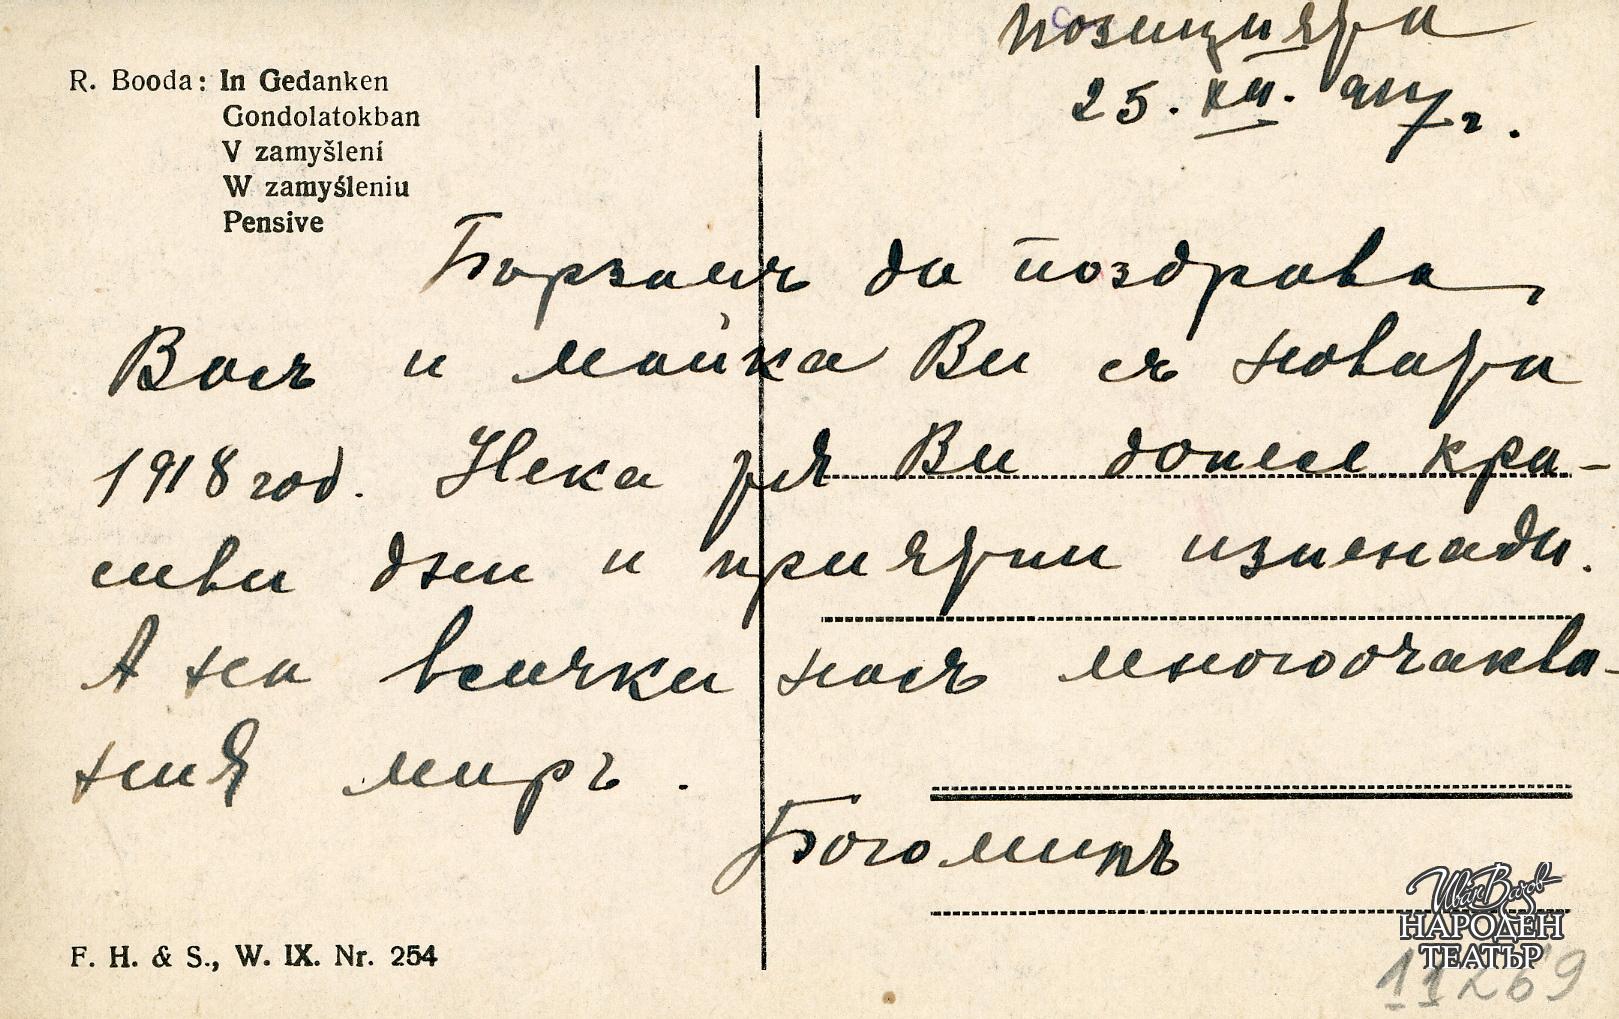 позицията
25. XII. 917 г.
R. Booda: In Gedanken
Gondolatokban
V zamyšlení
W zamyśleniu
Pensive
Бързамъ да поздравя
Васъ и майка Ви съ новата
1918 год. Нека тя Ви донесе кра-
сиви дни и приятни изненади.
А на всички насъ многоочаква-
ния миръ.
Богомилъ
F. H. & S., W. IX. Nr. 254
Иван Вазов
НАРОДЕН
ТЕАТЪР
11269